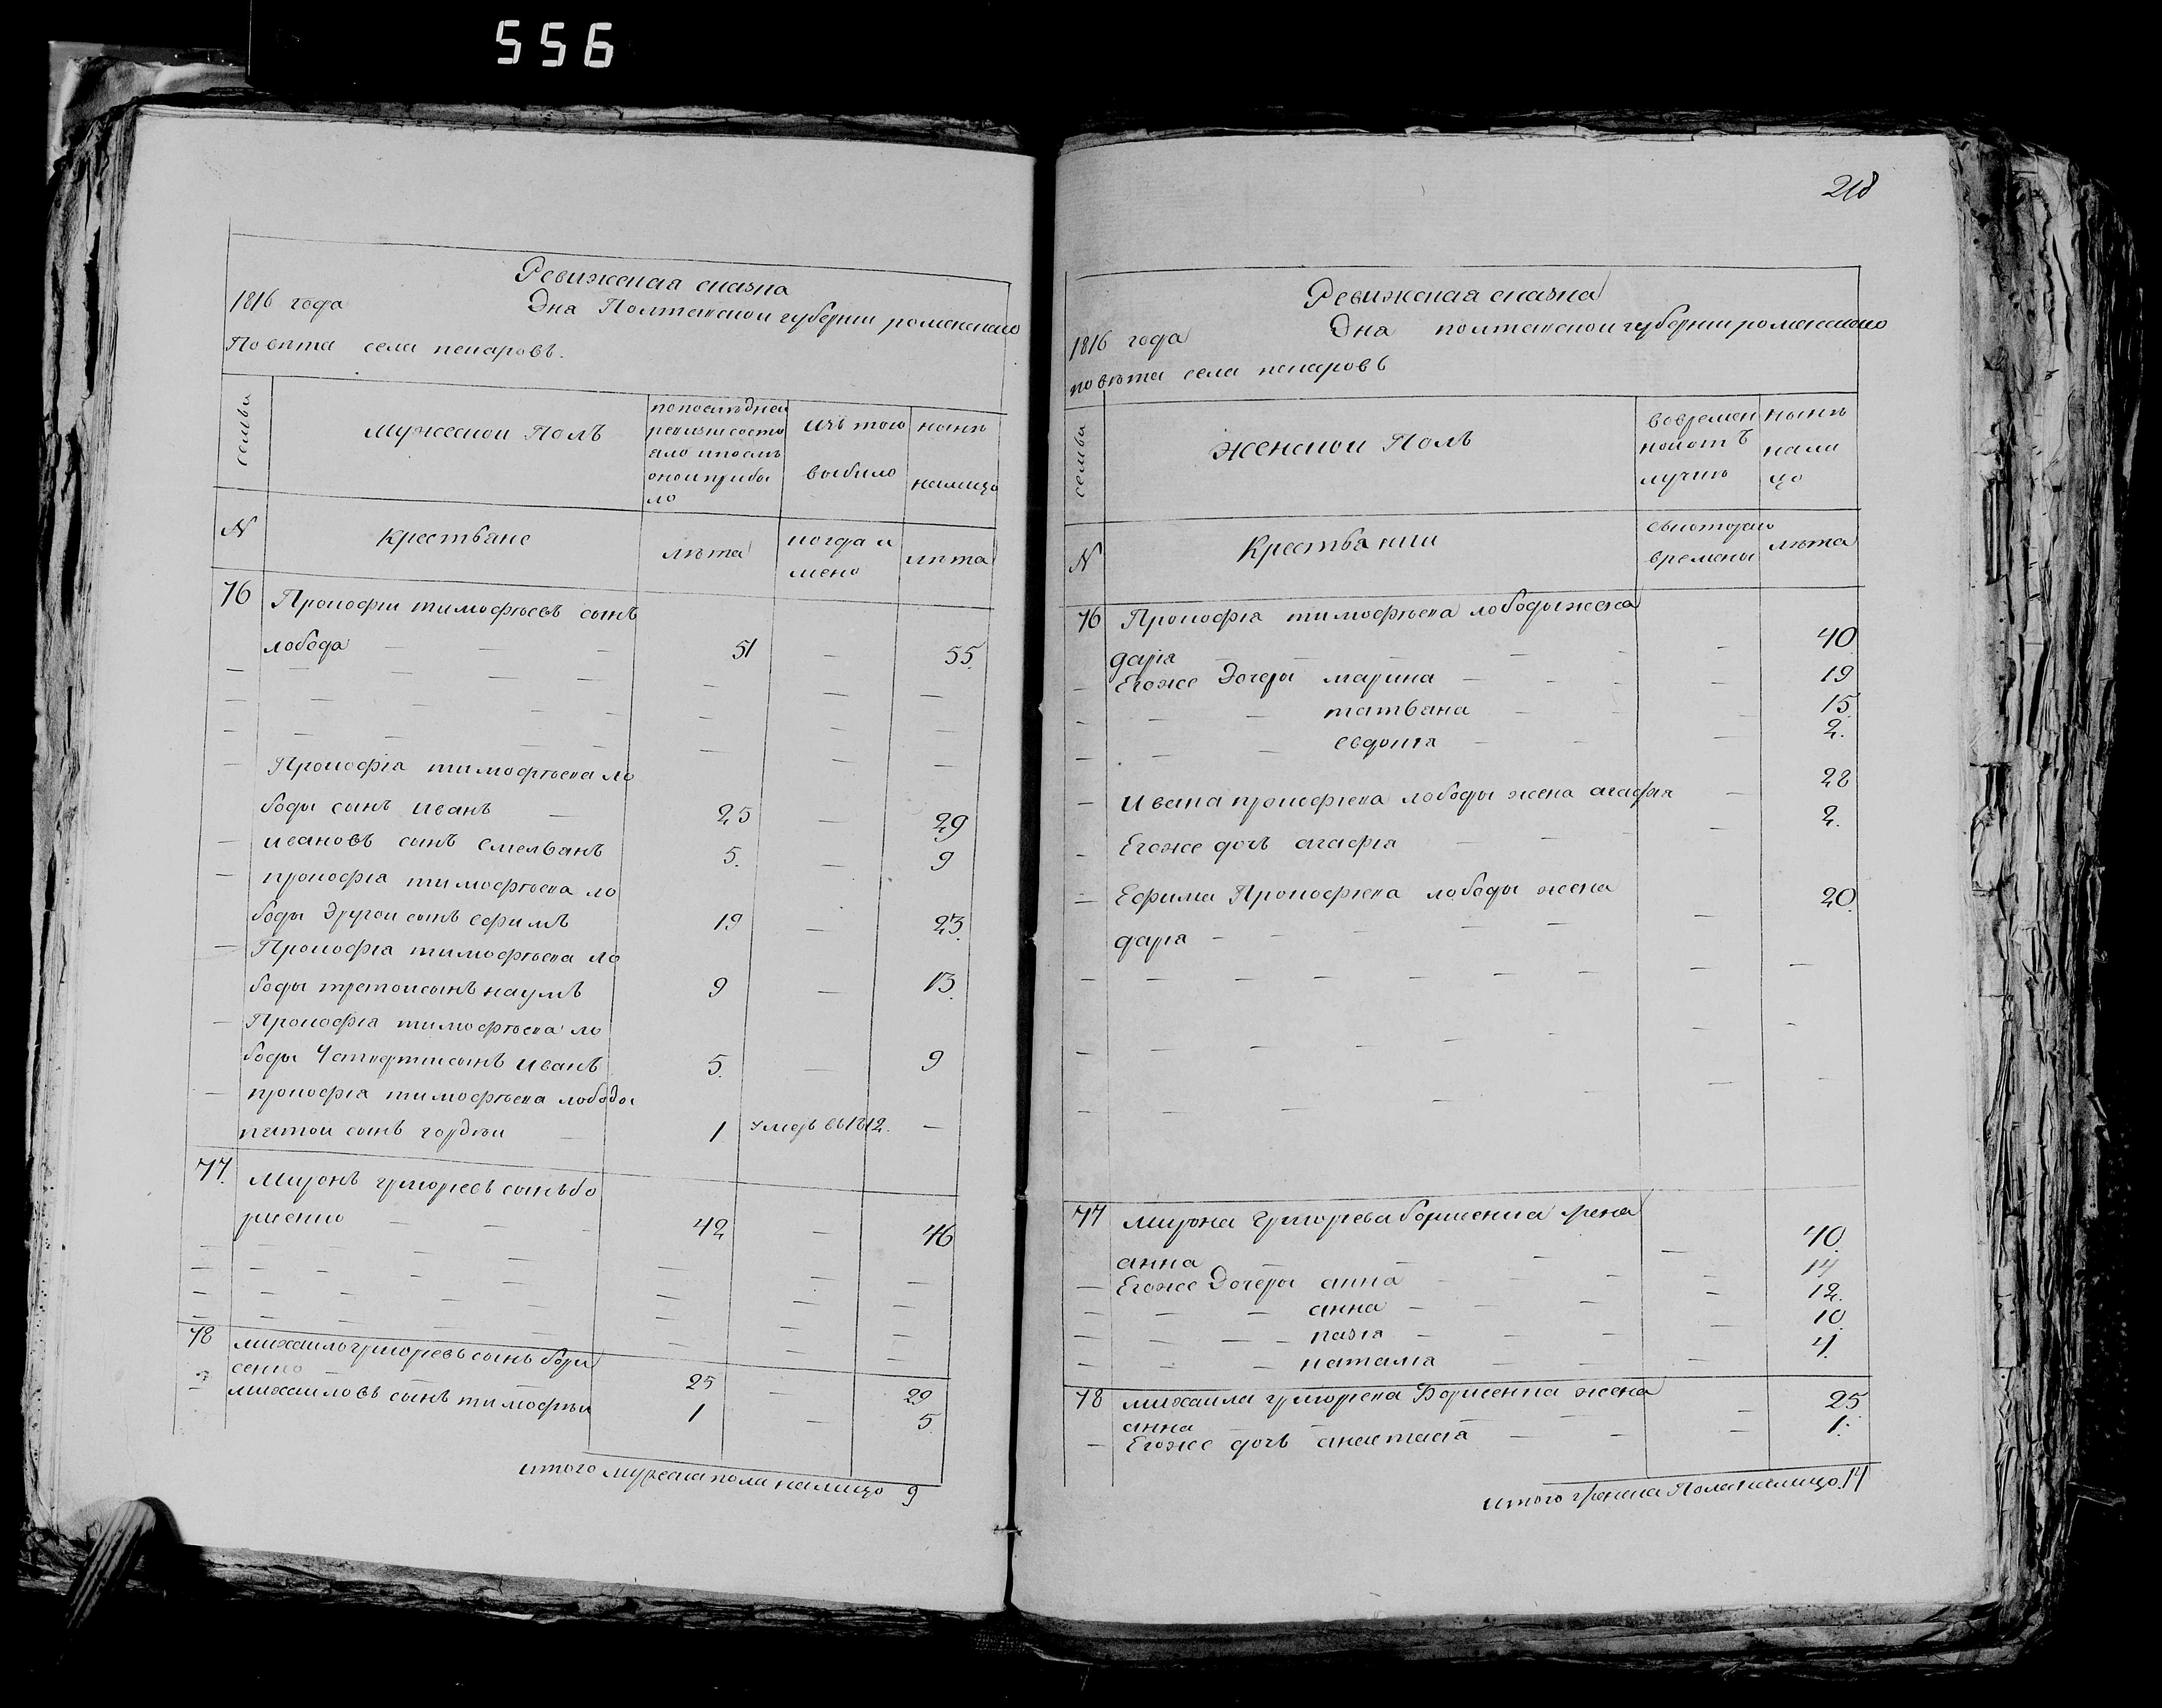 556
Ревижская сказка
1816 года Дня Полтавской губернии роменского
Повѣта села пекаровъ.
семьи
мужескои Полъ
попоследнеи ревизии состояло ипослѣ онои прибыло
изъ того выбило
нынѣ налицо
N
Крестьяне
лѣта
когда имено
лѣта
76 Прокофіи тимофѣевъ сынъ
лобода — — — 51 — 55.
Прокофія тимофѣева ло
боды сынъ иванъ — 25 — 29
ивановъ сынъ емельянъ 5. — 9
прокофія тимофѣева ло
боды Другои сынъ ефимъ 19 — 23.
Прокофія тимофѣева ло
боды третои сынъ наумъ 9 — 13.
Прокофія тимофѣева ло
боды Четвертии сынъ иванъ 5. — 9
прокофія тимофѣева лободы
пятои сынъ гордѣи — 1 умеръ въ 1812. —
77. Миронъ григорьевъ сынъ бо
рисенко — — — 42 — 46
78 михаило григорьевъ сынъ бори
сенко — — 25 — 29
михаиловъ сынъ тимофѣи 1 — 5.
итого мужеска пола налицо 9
218
Ревижская сказка
1816 года Дня полтавской губернии роменского
повѣта села пекаровъ
семьи
женскои Полъ
во времен нои отъ лучкѣ
нынѣ нали цо
N
Крестьянки
съ которого времены
лѣта
76 Прокофія тимофѣева лободы жена
дарія — — — — — — 40
Егоже Дочеры марина — — — — 19
— — татьяна — — 15.
— — евдокія — — — 2.
Ивана прокофіева лободы жена агафія — 28
Егоже дочь агафія — — — 2.
Ефима Прокофіева лободы жена
дарія — — — — — — 20.
77 мирона григорьева борисенка жена
анна — — — — 40.
Егоже Дочеры анна — — — 14
— — анна — — — 12.
— — — пазія — — — 10
— — наталія — — — 4.
78 михаила григорьева Борисенка жена
анна — — — — 25
Егоже дочь анастасія — — — 1.
итого женска Пола налицо. 14